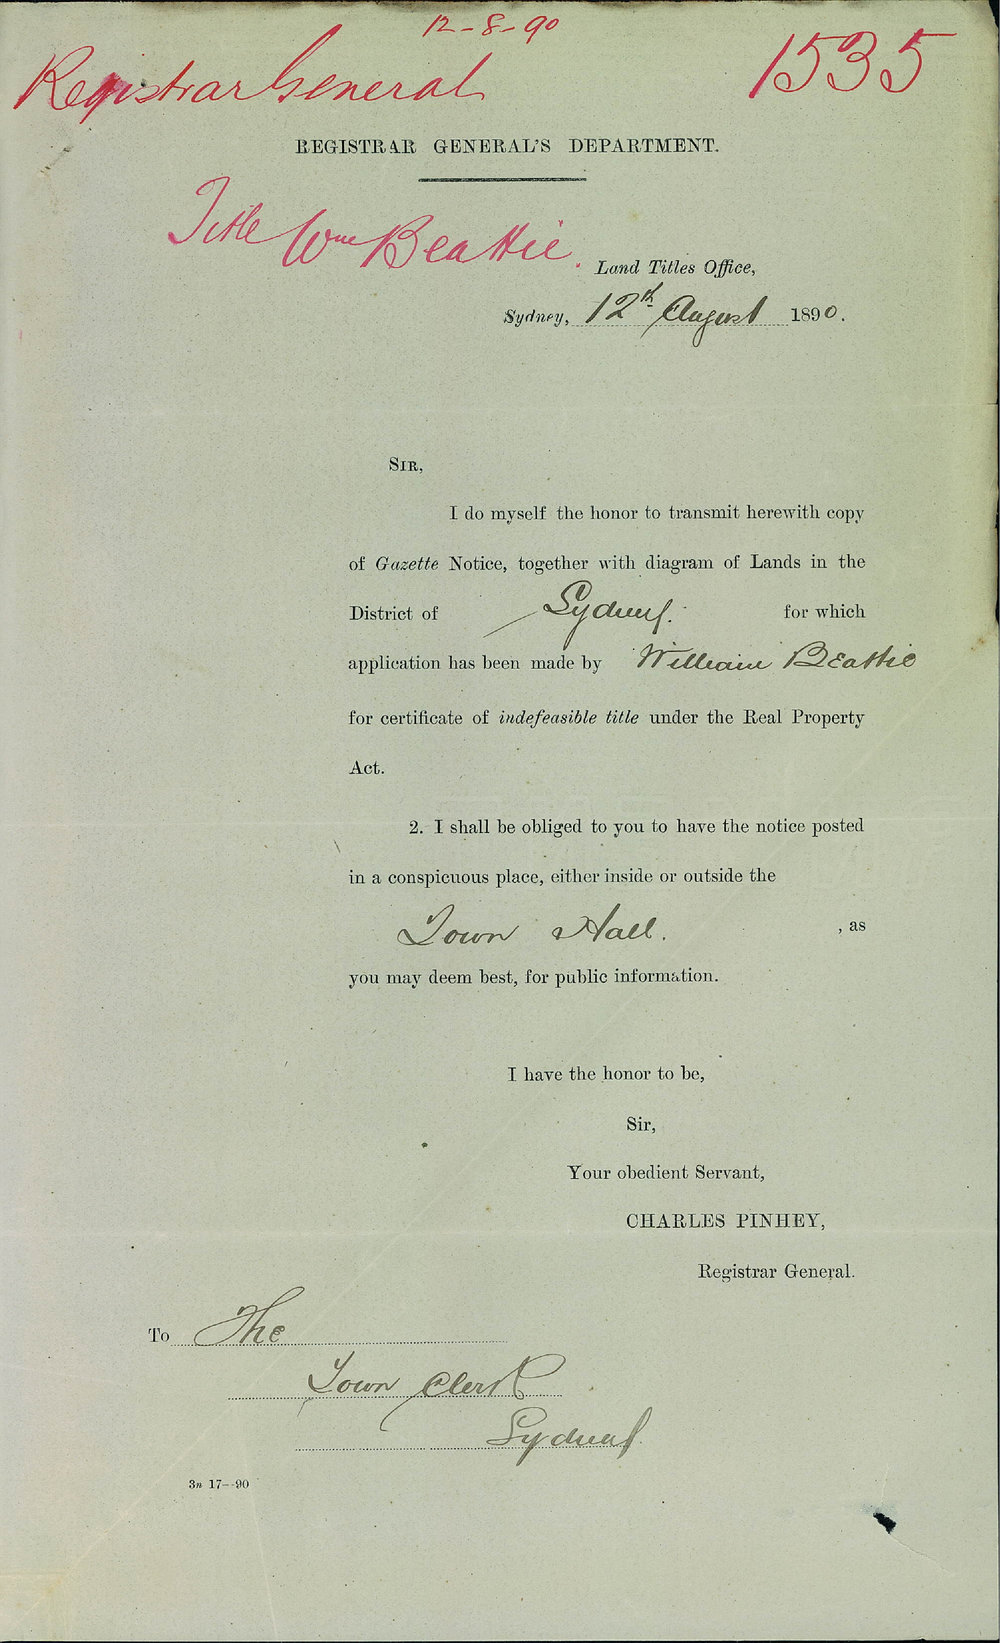 12-8-90
Registrar General 1535
REGISTRAR GENERAL'S DEPARTMENT.
Title Wm Beattie.
Land Titles Office,
Sydney, 12th August 1890.
SIR,
I do myself the honor to transmit herewith copy
of Gazette Notice, together with diagram of Lands in the
District of Sydney. for which
application has been made by William Beattie
for certificate of indefeasible title under the Real Property
Act.
2. I shall be obliged to you to have the notice posted
in a conspicuous place, either inside or outside the
Town Hall. , as
you may deem best, for public information.
I have the honor to be,
Sir,
Your obedient Servant,
CHARLES PINHEY,
Registrar General.
To The
Town Clerk
Sydney
3n 17--90